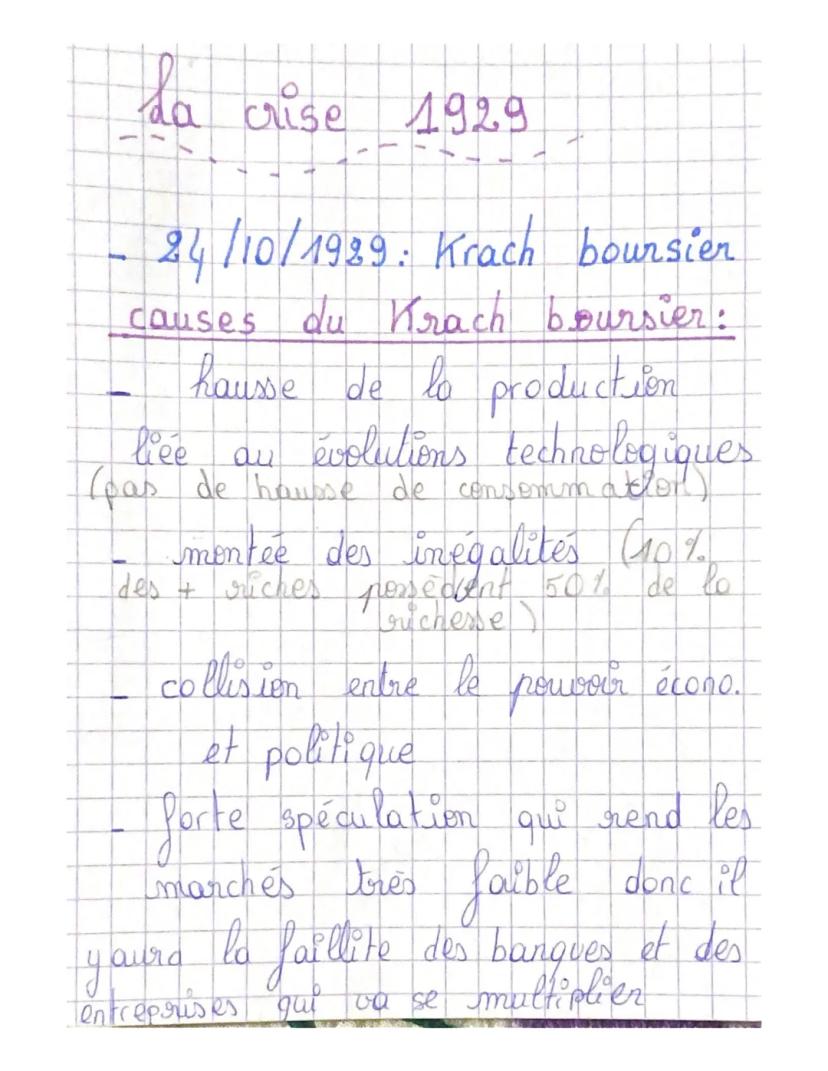 La crise 1929
- 24/10/1929 : Krach boursier
causes du Krach boursier :
- hausse de la production
liée au évolutions technologiques
(pas de hausse de consommation)
- montée des inégalités (10%
des + riches possèdent 50% de la
richesse)
- collision entre le pouvoir écono.
et politique
- forte spéculation qui rend les
marchés très faible donc il
y aura la faillite des banques et des
entreprises qui va se multiplier